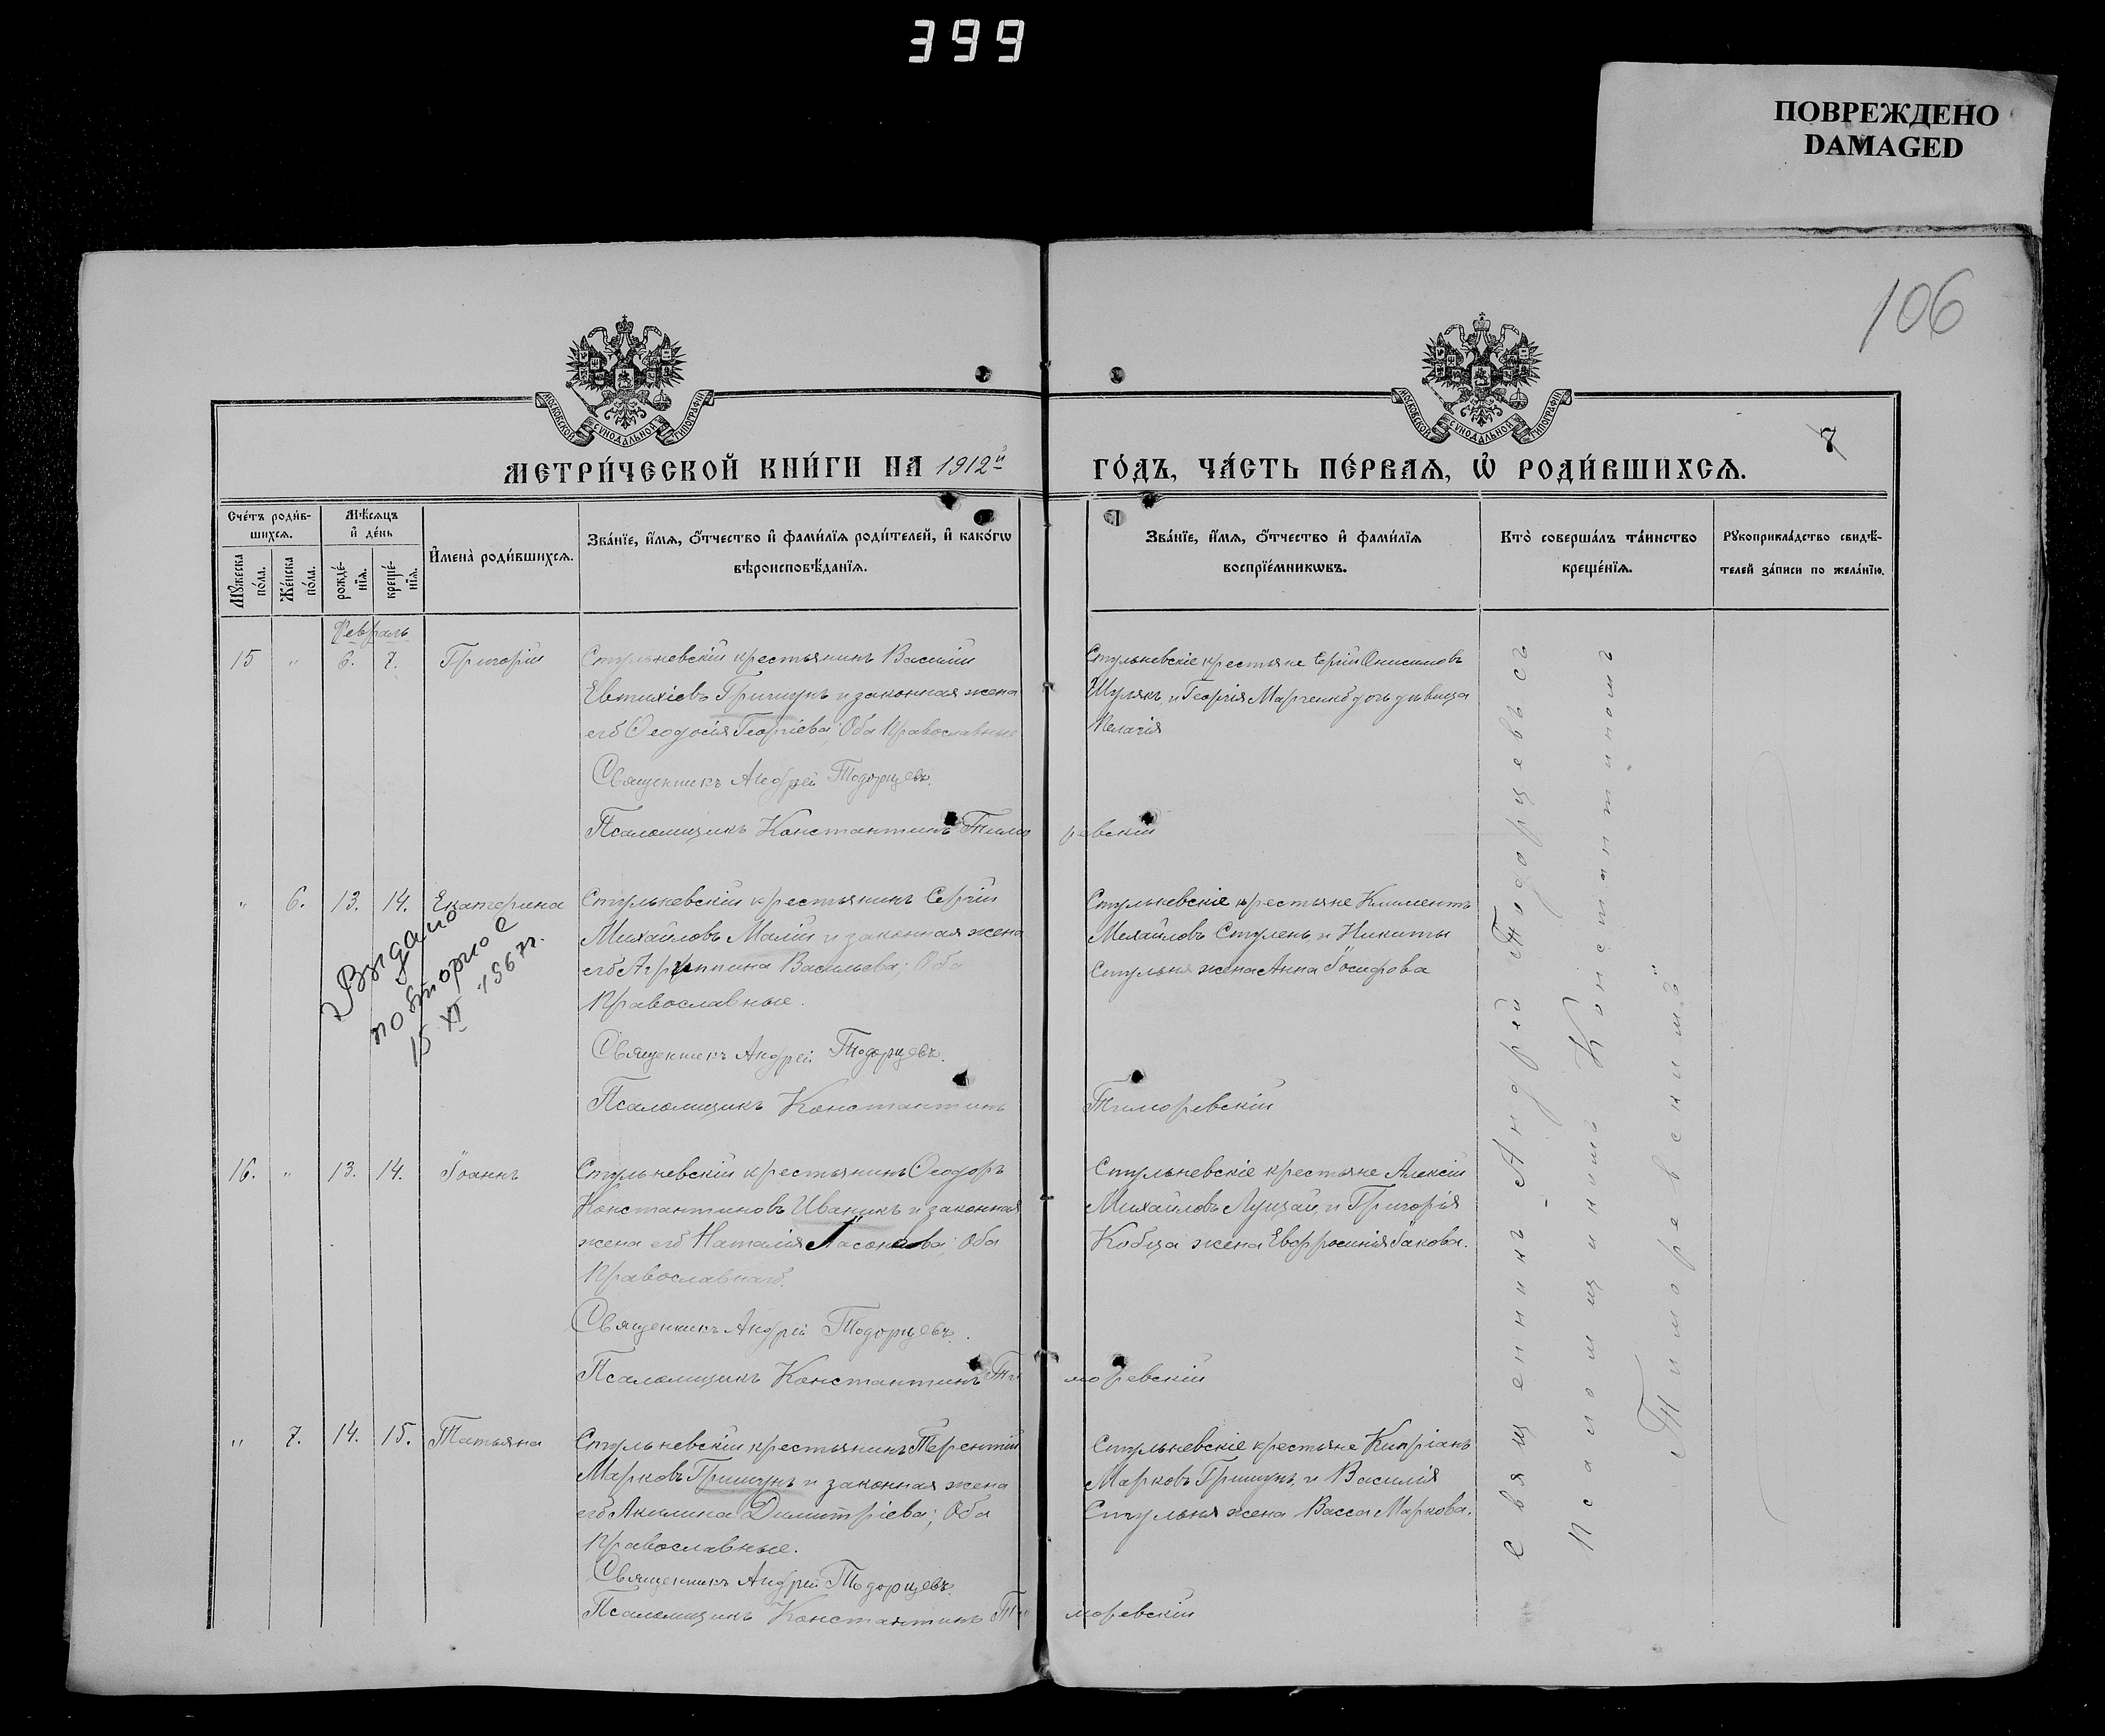 399
ПОВРЕЖДЕНО
DAMAGED
106
7
МОСКОВСКОЙ СѴНОДАЛЬНОЙ ТИПОГРАФІИ
МОСКОВСКОЙ СѴНОДАЛЬНОЙ ТИПОГРАФІИ
МЕТРИ́ЧЕСКОЙ КНИ́ГИ НА 1912й
ГО́ДЪ, ЧА́СТЬ ПЕ́РВАѦ, Ѡ҆ РОДИ́ВШИХСѦ.
Сче́тъ роди́в-
шихсѧ.
Мꙋжеска по́ла.
Же́нска по́ла.
Мѣ́сѧцъ
и҆ де́нь
рожде́-нїѧ.
креще́-нїѧ.
И҆мена̀ роди́вшихсѧ.
Зва́нїе, и҆́мѧ, ѻ҆́тчество и҆ фами́лїѧ роди́телей, и҆ како́гѡ
вѣроисповѣ́данїѧ.
Зва́нїе, и҆́мѧ, ѻ҆́тчество и҆ фами́лїѧ
воспрїе́мникѡвъ.
Кто̀ соверша́лъ та́инство
креще́нїѧ.
Рꙋкоприкла́дство свидѣ́-
телей за́писи по жела́нїю.
Февраль
15 " 6. 7. Григорій
Стульневскій крестьянинъ Василій
Евтихіевъ Гришунъ и законная жена
его Ѳеодосія Георгіева; Оба Православные
Священникъ Андрей Тодорцевъ.
Псаломщикъ Константинъ Тиморевскій
Стульневскіе крестьяне Сергій Онисимовъ
Шулякъ, и Георгія Марченко дочь дѣвица
Пелагія
" 6. 13. 14. Екатерина
Выдано
повторное
15 XI 1967г.
Стульневскій крестьянинъ Сергій
Михайловъ Малій и законная жена
его Агриппина Васильева; Оба
Православные.
Священникъ Андрей Тодорцевъ.
Псаломщикъ Константинъ Тиморевскій
Стульневскіе крестьяне Климентъ
Михайловъ Стулень, и Никиты
Стульня жена Анна Іосифова
16. " 13. 14. Іоаннъ
Стульневскій крестьянинъ Ѳеодоръ
Константиновъ Иваникъ и законная
жена его Наталія Іасонова; Оба
Православные.
Священникъ Андрей Тодорцевъ.
Псаломщикъ Константинъ Тиморевскій
Стульневскіе крестьяне Алексій
Михайловъ Лущай, и Григорія
Кобца жена Евфросинія Іакова.
" 7. 14. 15. Татьяна
Стульневскій крестьянинъ Терентій
Марковъ Гришунъ и законная жена
его Акилина Димитріева; Оба
Православные.
Священникъ Андрей Тодорцевъ.
Псаломщикъ Константинъ Тиморевскій
Стульневскіе крестьяне Кипріанъ
Марковъ Гришунъ, и Василія
Стульня жена Васса Маркова.
Священникъ Андрей Тодорцевъ съ
Псаломщикомъ Константиномъ
Тиморевскимъ